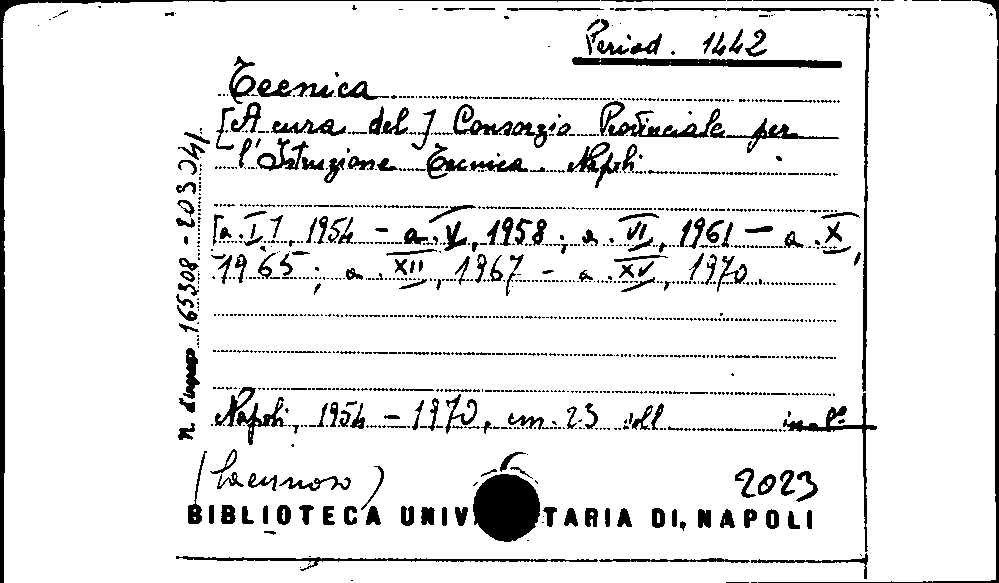 Period. 1442
Tecnica
[A cura del] Consorzio Provinciale per
l'Istruzione Tecnica. Napoli.
[a. I], 1954 - a. V, 1958; a. VI, 1961 - a. X,
1965; a. XII, 1967 - a. XV, 1970.
Napoli, 1954 - 1970, cm. 23 ill.
(lacunoso)
2023
BIBLIOTECA UNIV TARIA DI NAPOLI
n. d'ingresso 165308 - 203041